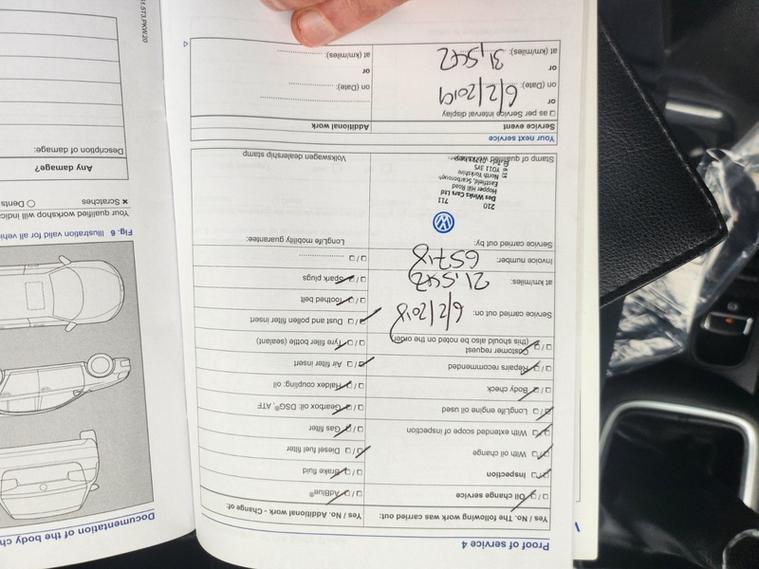 Proof of service 4
Yes / No. The following work was carried out:
Oil change service
Inspection
With oil change
With extended scope of inspection
LongLife engine oil used
Body check
Repairs recommended
Customer request
(this should also be noted on the order)
Service carried out on: 6/2/2018
at km/miles: 21,542
Invoice number: 65718
Service carried out by:
210 711
Des Winks Cars Ltd
Hopper Hill Road
Eastfield, Scarborough
North Yorkshire
YO11 3YS
Stamp of qualified workshop
Yes / No. Additional work - Change of:
AdBlue®
Brake fluid
Diesel fuel filter
Gas filter
Gearbox oil: DSG®, ATF
Haldex coupling: oil
Air filter insert
Tyre filler bottle (sealant)
Dust and pollen filter insert
Toothed belt
Spark plugs
LongLife mobility guarantee:
Volkswagen dealership stamp
Your next service
Service event
Additional work
as per Service interval display
or
on (Date): 6/2/2019
or
at (km/miles): 31,542
on (Date):
or
at (km/miles):
Documentation of the body ch
Fig. 6 Illustration valid for all vehi
Your qualified workshop will indic
× Scratches ○ Dents
Any damage?
Description of damage: